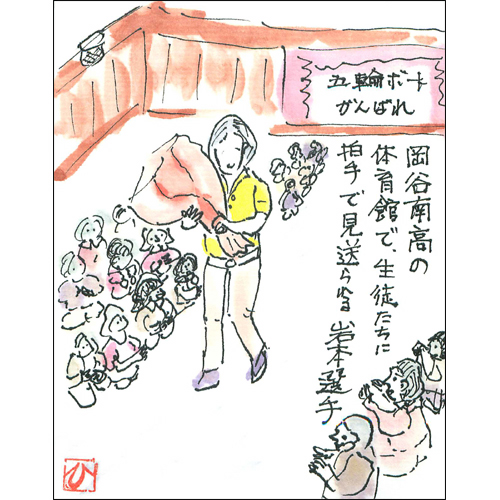 五輪ボート
がんばれ
岡谷南高の
体育館で、生徒たちに
拍手で見送られる 岩本選手
ひ